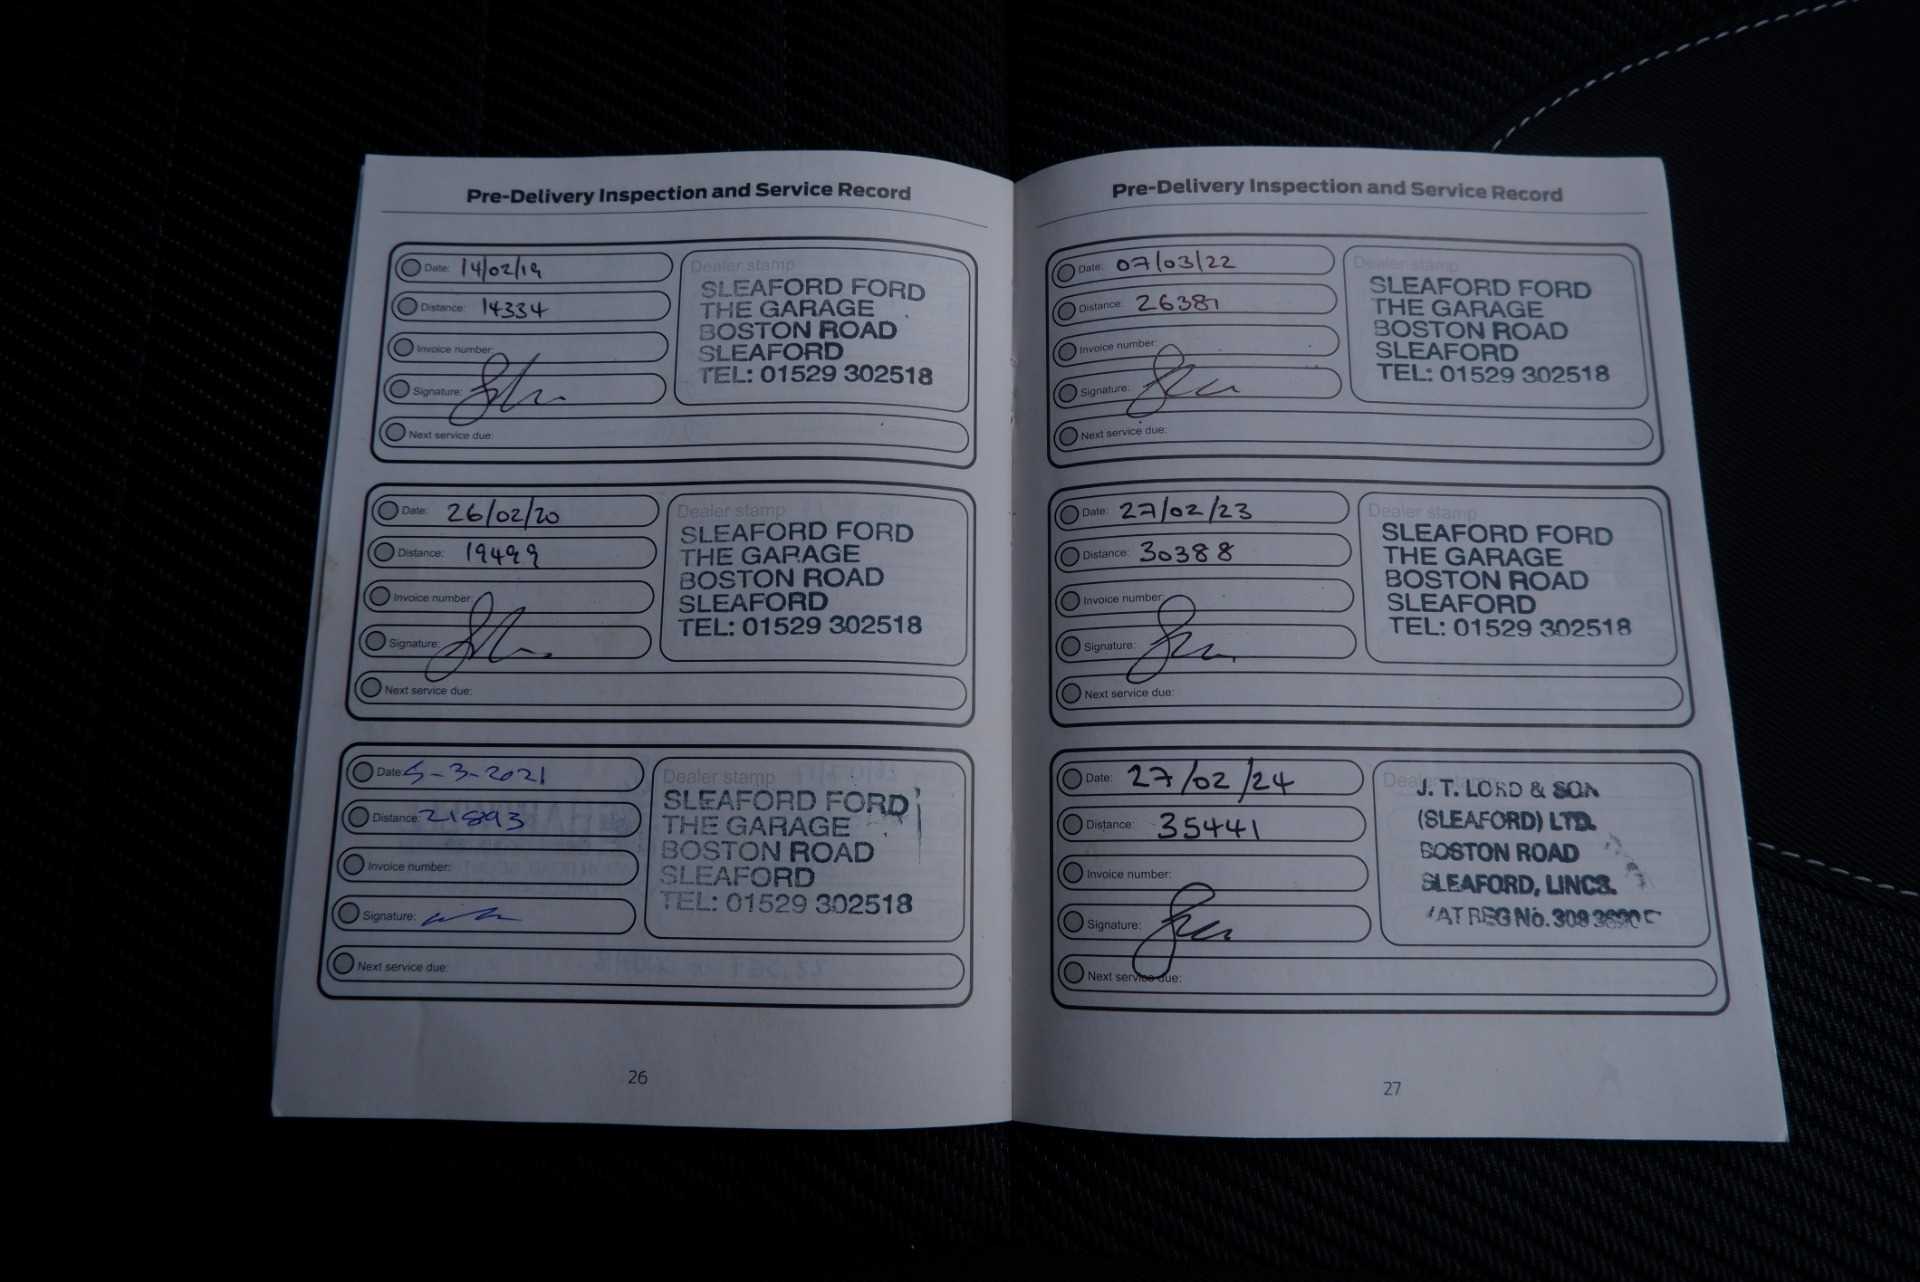 Pre-Delivery Inspection and Service Record
Date: 14/02/19
Distance: 14334
Invoice number:
Signature:
Next service due:
Dealer stamp
SLEAFORD FORD
THE GARAGE
BOSTON ROAD
SLEAFORD
TEL: 01529 302518
Date: 26/02/20
Distance: 19499
Invoice number:
Signature:
Next service due:
Dealer stamp
SLEAFORD FORD
THE GARAGE
BOSTON ROAD
SLEAFORD
TEL: 01529 302518
Date: 5-3-2021
Distance: 21893
Invoice number:
Signature:
Next service due:
Dealer stamp
SLEAFORD FORD
THE GARAGE
BOSTON ROAD
SLEAFORD
TEL: 01529 302518
26
Pre-Delivery Inspection and Service Record
Date: 07/03/22
Distance: 26381
Invoice number:
Signature:
Next service due:
Dealer stamp
SLEAFORD FORD
THE GARAGE
BOSTON ROAD
SLEAFORD
TEL: 01529 302518
Date: 27/02/23
Distance: 30388
Invoice number:
Signature:
Next service due:
Dealer stamp
SLEAFORD FORD
THE GARAGE
BOSTON ROAD
SLEAFORD
TEL: 01529 302518
Date: 27/02/24
Distance: 35441
Invoice number:
Signature:
Next service due:
Dealer stamp
J. T. LORD & SON
(SLEAFORD) LTD.
BOSTON ROAD
SLEAFORD, LINCS.
VAT REG No. 309
27